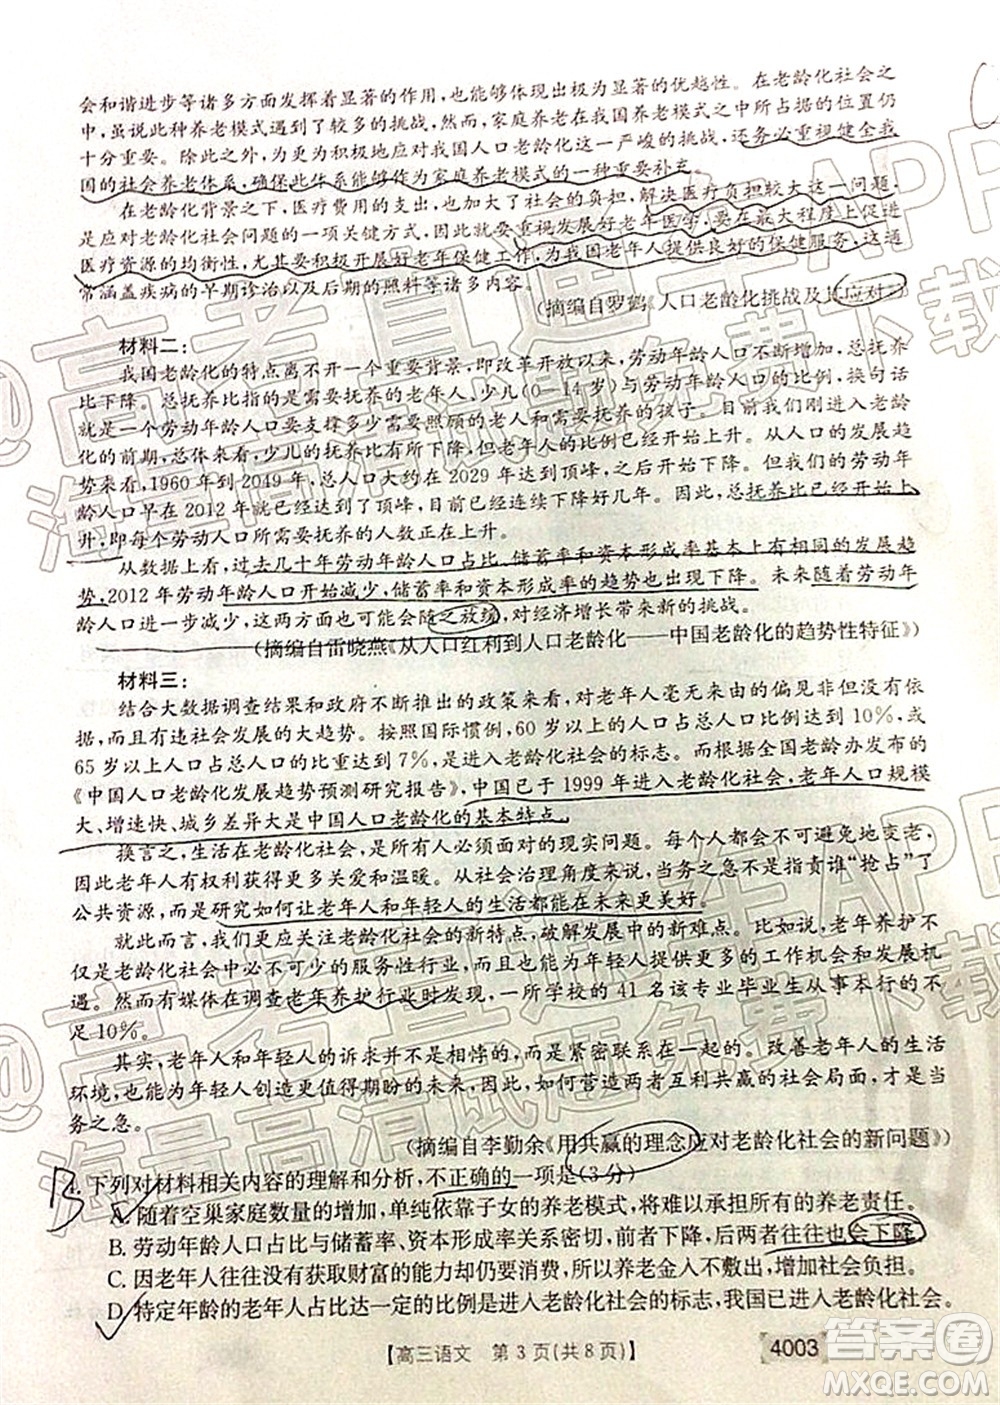 会和谐进步等诸多方面发挥着显著的作用，能够体现出极为显著的优越性。在老龄化社会之
中，虽说此种养老模式遇到了较多的挑战，然而，家庭养老在我国养老模式之中所占据的位置仍
十分重要。除此之外，为更为积极地应对我国人口老龄化这一严峻的挑战，还务必重视健全我
国的社会养老体系，确保此体系能够作为家庭养老模式的一种重要补充。
在老龄化背景之下，医疗费用的支出，也是一种较为突出的负担，解决医疗负担较大这一问题，
是应对老龄化社会问题的一项关键方式，因此要重视发展好老年医学，要在最大程度上促进
医疗资源的均衡性，尤其要积极开展好老年保健工作，为我国老年人提供良好的保健服务，这通
常涵盖疾病的早期诊治以及后期的照料等诸多内容。
(摘编自罗鹤《人口老龄化挑战及其应对》)
材料二：
我国老龄化的特点离不开一个重要背景，即改革开放以来，劳动年龄人口不断增加，总抚养
比下降。总抚养比指的是需要抚养的老人、少儿(0—14岁)与劳动年龄人口的比例，换句话说
就是一个劳动年龄人口要支撑多少需要照顾的老人和需要抚养的孩子。我们刚进入老龄
化的前期，总体来看，少儿的抚养比有所下降，但老年人的比例已经开始上升。从人口的发展趋
势来看，1960年到2049年，总人口大约在2029年达到顶峰，目前已经开始下降。我们的劳动年
龄人口早在2012年就已经达到了顶峰，目前已经连续下降好几年。总抚养比已经开始上
升，即每个劳动人口所需要抚养的人数正在上升。
从数据上看，过去几十年劳动年龄人口占比、储蓄率和资本形成率基本上有相同的发展趋
势，2012年劳动年龄人口开始减少，储蓄率和资本形成率的趋势也出现下降。未来随着劳动年
龄人口进一步减少，这两方面也可能会随之放缓，对经济增长带来新的挑战。
(摘编自雷晓燕《从人口红利到人口老龄化——中国老龄化的趋势性特征》)
材料三：
结合大数据调查结果和政府不断推出的政策来看，对老年人毫无来由的偏见没有依
据，而且有违社会发展的大趋势。按照国际惯例，60岁以上的人口占总人口比例达到10%，或
65岁以上人口占总人口的比重达到7%，是一个国家进入老龄化社会的标志。而根据全国老龄办发布的
《中国人口老龄化发展趋势预测研究报告》，中国已于1999年进入老龄化社会，老年人口规模
大、增速快、城乡差异大是中国人口老龄化的基本特点。
换言之，生活在老龄化社会，是所有人必须面对的现实问题。每个人都会不可避免地变老，
因此老年人需要更多关爱和温暖。从社会治理角度来说，当务之急不是指责谁“抢占”了
公共资源，而是研究如何让老年人和年轻人的生活都能在未来更美好。
就此而言，我们更应关注老龄化社会的新特点，破解发展中的新难点。比如说，老年养护不
仅是老龄化社会中必不可少的服务性行业，而且能为年轻人提供更多的工作机会和发展机
遇。然而有媒体在调查老年养护行业时发现，一所学校的41名该专业毕业生从事本行的不
足10%。
其实，老年人和年轻人的诉求并不是相悖的，而是紧密联系在一起的。改善老年人的生活
环境，也能为年轻人创造更加值得期盼的未来，因此，如何营造两者互利共赢的社会局面，才是当务
之急。
(摘编自李勤余《用共赢的理念应对老龄化社会的新问题》)
B
4. 下列对材料相关内容的理解和分析，不正确的一项是(3分)
A. 随着空巢家庭数量的增加，单纯依靠子女的养老模式，将难以承担所有的养老责任。
B. 劳动年龄人口占比与储蓄率、资本形成率关系密切，前者下降，后两者往往也会下降。
C. 因老年人往往没有获取财富的能力却又消费，所以养老金入不敷出，增加社会负担。
D. 特定年龄的老年人占比达一定的比例是老龄化社会的标志，我国已进入老龄化社会。
【高三语文 第3页(共8页)】
4003
答案圈
MXQE.COM